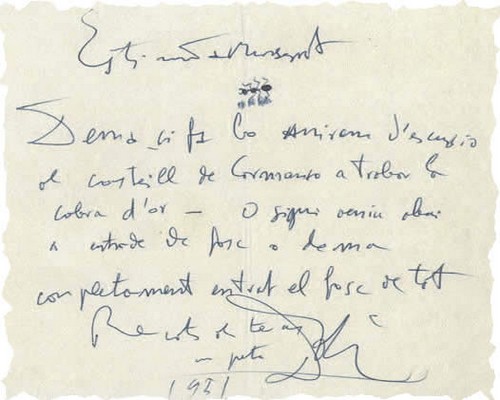 Demà si fa bo anirem d'escursio
al casteill de Cormanso a trobar la
cabra d'or — O sigui veniu abui
a entrada de fosc o demà
complectament entrat el fosc de tot
Records al teu
un petó Dalí
1951